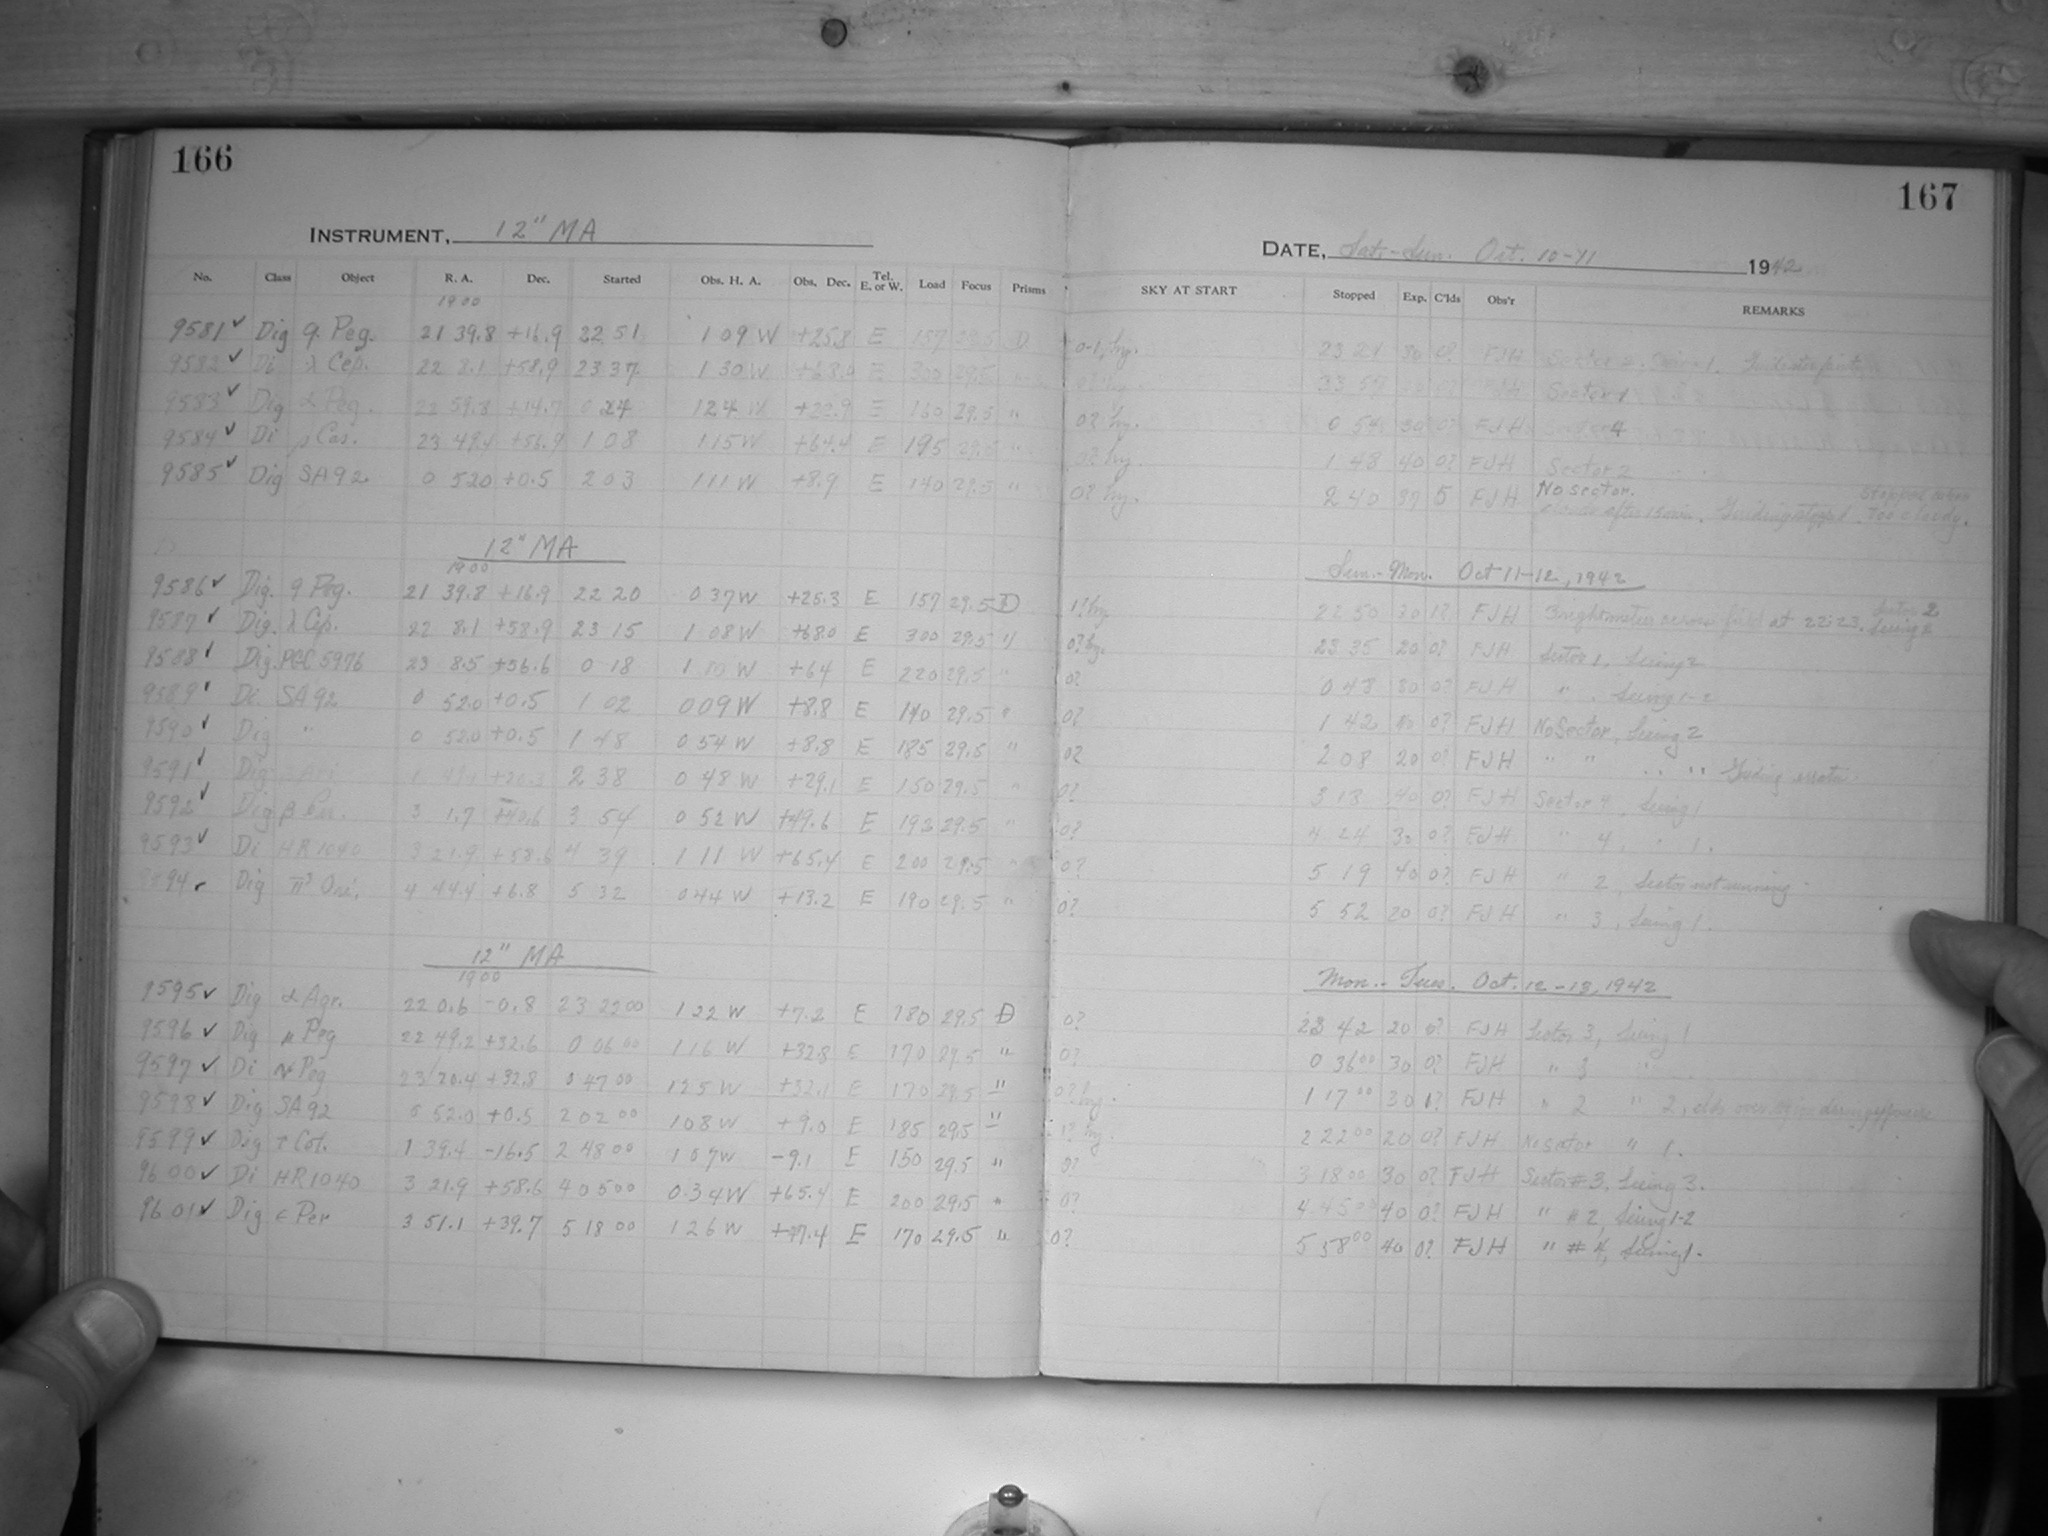 166
167
INSTRUMENT, 12" MA
DATE, Sat.-Sun. Oct. 10-11 1942
No. Class Object R. A. Dec. Started Obs. H. A. Obs. Dec. Tel. E. or W. Load Focus Prisms SKY AT START Stopped Exp. C'lds Obs'r REMARKS
1900
9581 ✓ Dig 9 Peg. 21 39.8 +16.9 22 51 1 09 W +25.8 E 157 29.5 D 0-1, hy. 23 21 30 0? FJH
9582 ✓ Di λ Cep. 22 8.1 +58.9 23 37 1 30 W E 300 29.5 23 57 FJH Sector 1
9583 ✓ Dig α Peg. 22 59.8 +14.7 0 24 1 24 W +22.9 E 160 29.5 " 0? hy. 0 54 30 0? FJH
9584 ✓ Di Cas. 23 49.4 +56.9 1 08 1 15 W +64.4 E 195 29.5 " 0? hy 1 48 40 0? FJH Sector 2
9585 ✓ Dig SA 92. 0 52.0 +0.5 2 03 1 11 W +8.9 E 140 29.5 " 0? hy. 2 40 37 5 FJH No sector. Stopped when
clouds after 15 min. Guiding stopped. Too cloudy.
12" MA
Sun.-Mon. Oct 11-12, 1942
1900
9586 ✓ Dig. 9 Peg. 21 39.8 +16.9 22 20 0 37 W +25.3 E 157 29.5 D 1? hy. 22 50 30 1? FJH Bright meteor across field at 22:23. Sector 2 Seeing 2
9587 ✓ Dig. λ Cep. 22 8.1 +58.9 23 15 1 08 W +68.0 E 300 29.5 " 0? hy. 23 35 20 0? FJH Sector 1, Seeing 2
9588 ✓ Dig. PGC 5976 23 8.5 +56.6 0 18 1 10 W +64 E 220 29.5 " 0? 0 48 30 0? FJH " . Seeing 1-2
9589 ✓ Di. SA 92 0 52.0 +0.5 1 02 0 09 W +8.8 E 140 29.5 " 0? 1 42 40 0? FJH No Sector, Seeing 2
9590 ✓ Dig " 0 52.0 +0.5 1 48 0 54 W +8.8 E 185 29.5 " 0? 2 08 20 0? FJH " " " " Guiding erratic
9591 ✓ Dig 2 38 0 48 W +29.1 E 150 29.5 " 0? 3 18 40 0? FJH Sector 4, Seeing 1
9592 ✓ Dig β Per. 3 1.7 +40.6 3 54 0 52 W +49.6 E 193 29.5 " 0? 4 24 30 0? FJH " 4, " 1.
9593 ✓ Di HR 1040 3 21.9 +58.6 4 39 1 11 W +65.4 E 200 29.5 " 0? 5 19 40 0? FJH " 2, Sector not running
9594 ✓ Dig π³ Ori. 4 44.4 +6.8 5 32 0 44 W +13.2 E 190 29.5 " 0? 5 52 20 0? FJH " 3, Seeing 1.
12" MA
Mon.-Tues. Oct. 12-13, 1942
1900
9595 ✓ Dig α Aqr. 22 0.6 -0.8 23 22 00 1 22 W +7.2 E 180 29.5 D 0? 23 42 20 0? FJH Sector 3, Seeing 1
9596 ✓ Dig μ Peg 22 49.2 +32.6 0 06 00 1 16 W +32.8 E 170 29.5 " 0? 0 36 00 30 0? FJH " 3 "
9597 ✓ Di Peg 23 20.4 +32.8 0 47 00 1 25 W +32.1 E 170 29.5 " 0? hy. 1 17 00 30 1? FJH " 2 " 2,
9598 ✓ Dig SA 92 0 52.0 +0.5 2 02 00 1 08 W +9.0 E 185 29.5 " 1? hy. 2 22 00 20 0? FJH No Sector " 1.
9599 ✓ Dig τ Cet. 1 39.4 -16.5 2 48 00 1 07 W -9.1 E 150 29.5 " 0? 3 18 00 30 0? FJH Sector #3. Seeing 3.
9600 ✓ Di HR 1040 3 21.9 +58.6 4 05 00 0 34 W +65.4 E 200 29.5 " 0? 4 45 00 40 0? FJH " #2, Seeing 1-2
9601 ✓ Dig ε Per 3 51.1 +39.7 5 18 00 1 26 W +47.4 E 170 29.5 " 0? 5 58 00 40 0? FJH " #4, Seeing 1.